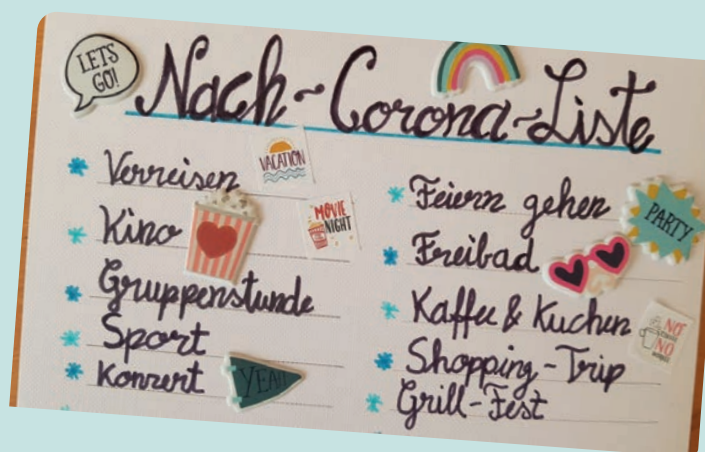 LETS
GO!
Nach-Corona-Liste
Verreisen
VACATION
Kino
MOVIE
NIGHT
Gruppenstunde
Sport
Konzert
YEAH
Feiern gehen
PARTY
Freibad
Kaffee & Kuchen
NO
NO
Shopping-Trip
Grill-Fest